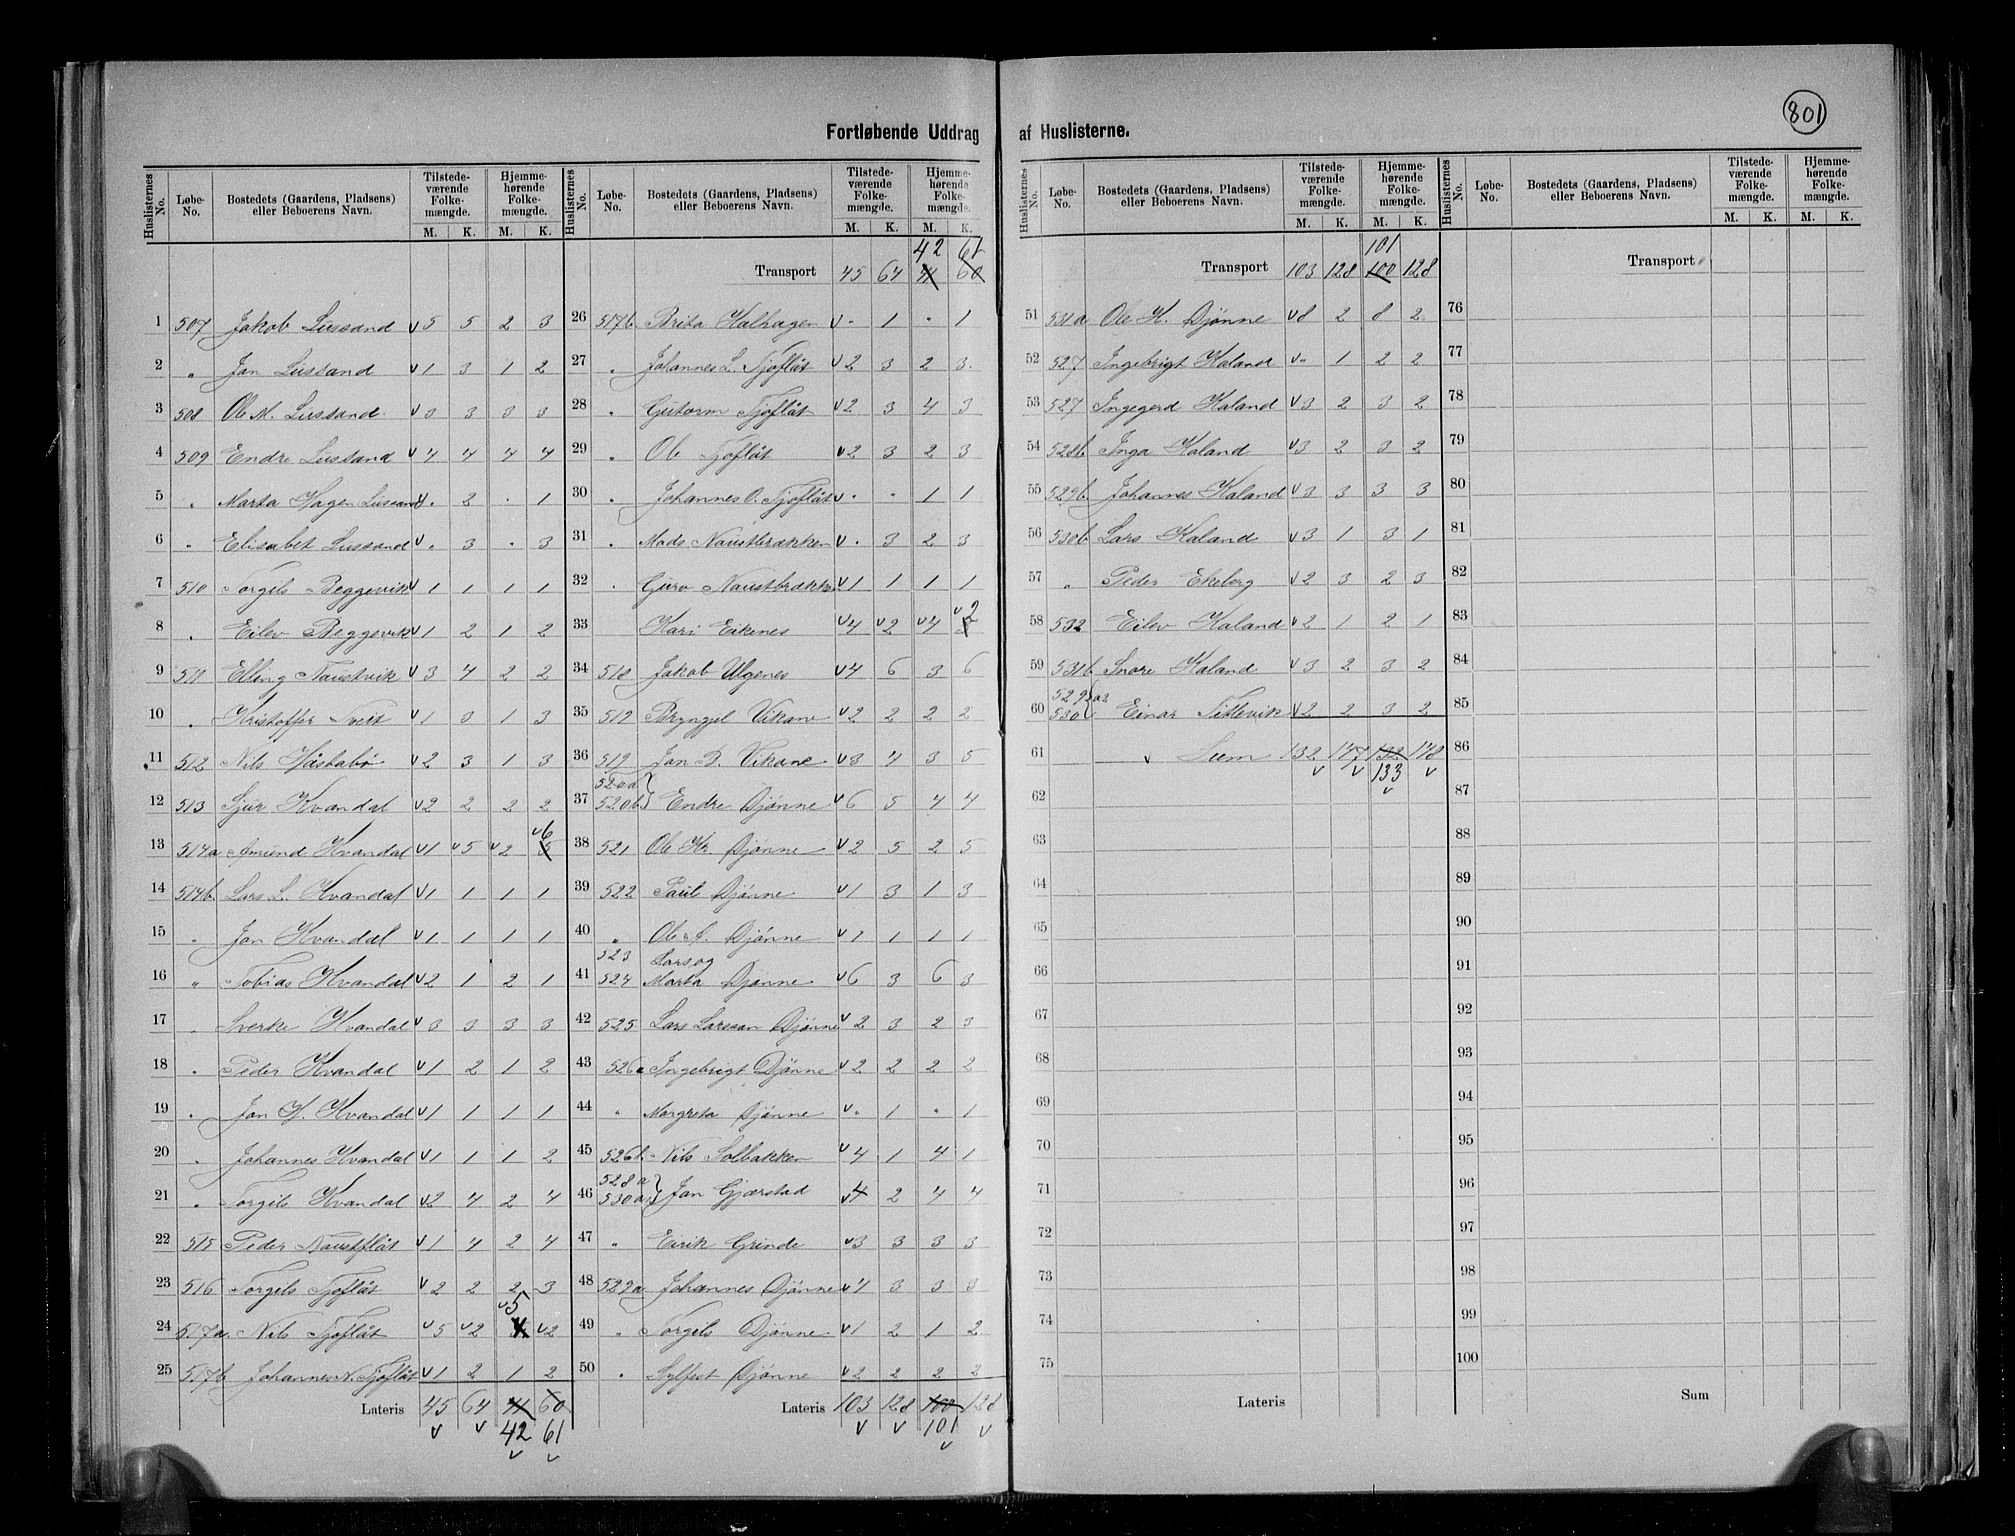 801
Fortløbende Uddrag af Huslisterne.
Huslisternes No. Løbe-No. Bostedets (Gaardens, Pladsens) eller Beboerens Navn. Tilstede-værende Folke-mængde. Hjemme-hørende Folke-mængde.
M. K. M. K.
1 507 Jakob Lussand v 5 5 2 3
2 „ Jan Lussand v 1 3 1 2
3 508 Ole M. Lussand v 3 3 3 3
4 509 Endre Lussand v 4 4 4 4
5 „ Marta Hagen Lussand v . 2 . 1
6 „ Elisabet Lussand v . 3 . 3
7 510 Torgils Beggevik v 1 1 1 1
8 „ Eilev Beggevik v 1 2 1 2
9 511 Elling Naustvik v 3 4 2 2
10 „ Kristoffer Tveit v 1 3 1 3
11 512 Nils Håstabø v 2 3 1 3
12 513 Sjur Kvandal v 2 2 2 2
13 514a Amund Kvandal v 1 v 5 v 2 v 6 5
14 514b Lars L. Kvandal v 1 1 1 1
15 „ Jan Kvandal v 1 1 1 1
16 „ Tobias Kvandal v 2 1 2 1
17 „ Sverke Kvandal v 3 3 3 3
18 „ Peder Kvandal v 1 2 1 2
19 „ Jan K. Kvandal v 1 1 1 1
20 „ Johannes Kvandal v 1 1 1 2
21 „ Torgils Kvandal v 2 4 2 4
22 515 Peder Naustflåt v 1 4 2 4
23 516 Torgils Tjoflåt v 2 2 2 3
24 517a Nils Tjoflåt v 5 v 2 v 5 4 v 2
25 517b Johannes N. Tjoflåt v 1 2 1 2
Lateris 45 64 41 60
v v 42 61
v v
Huslisternes No. Løbe-No. Bostedets (Gaardens, Pladsens) eller Beboerens Navn. Tilstede-værende Folke-mængde. Hjemme-hørende Folke-mængde.
M. K. M. K.
42 61
Transport 45 64 41 60
26 517b Brita Halhagen v . 1 . 1
27 „ Johannes L. Tjoflåt v 2 3 2 3
28 „ Gutorm Tjoflåt v 2 3 4 3
29 „ Ole Tjoflåt v 2 3 2 3
30 „ Johannes O. Tjoflåt v . . 1 1
31 „ Mads Naustbrækken v . 3 2 3
32 „ Guro Naustbrækken v 1 1 1 1
33 Kari Eikenes v 4 v 2 v 4 v 2
34 518 Jakob Ulgenes v 4 6 3 6
35 519 Bryngel Vikane v 2 2 2 2
36 519 Jan B. Vikane v 3 4 3 5
37 520a 520b Endre Djønne v 6 5 4 4
38 521 Ole Kr. Djønne v 2 5 2 5
39 522 Paul Djønne v 1 3 1 3
40 „ Ole A. Djønne v 1 1 1 1
41 523 524 Lars og Marta Djønne v 6 3 6 3
42 525 Lars Larsson Djønne v 2 3 2 3
43 526a Ingebrigt Djønne v 2 2 2 2
44 „ Margreta Djønne v . 1 . 1
45 526b Nils Solbakken v 4 1 4 1
46 528a 530a Jan Gjærstad v 4 2 4 4
47 „ Eirik Grinde v 3 3 3 3
48 529a Johannes Djønne v 4 3 3 3
49 „ Torgils Djønne v 1 2 1 2
50 „ Sylfest Djønne v 2 2 2 2
Lateris 103 128 100 128
v v 101 v
v
Huslisternes No. Løbe-No. Bostedets (Gaardens, Pladsens) eller Beboerens Navn. Tilstede-værende Folke-mængde. Hjemme-hørende Folke-mængde.
M. K. M. K.
101
Transport 103 128 100 128
51 531a Ole K. Djønne v 8 2 8 2
52 527 Ingebrigt Kaland v . 1 2 2
53 527 Ingegerd Kaland v 3 2 3 2
54 528b Inga Kaland v 3 2 3 2
55 529b Johannes Kaland v 3 3 3 3
56 530b Lars Kaland v 3 1 3 1
57 „ Peder Ekeberg v 2 3 2 3
58 532 Eilev Kaland v 2 1 2 1
59 531b Snore Kaland v 3 2 3 2
60 529 530 a2 Einar Tittevik v 2 2 3 2
61 v Sum 132 147 132 148
62 v v 133 v
v
63
64
65
66
67
68
69
70
71
72
73
74
75
Lateris
Huslisternes No. Løbe-No. Bostedets (Gaardens, Pladsens) eller Beboerens Navn. Tilstede-værende Folke-mængde. Hjemme-hørende Folke-mængde.
M. K. M. K.
Transport
76
77
78
79
80
81
82
83
84
85
86
87
88
89
90
91
92
93
94
95
96
97
98
99
100
Sum